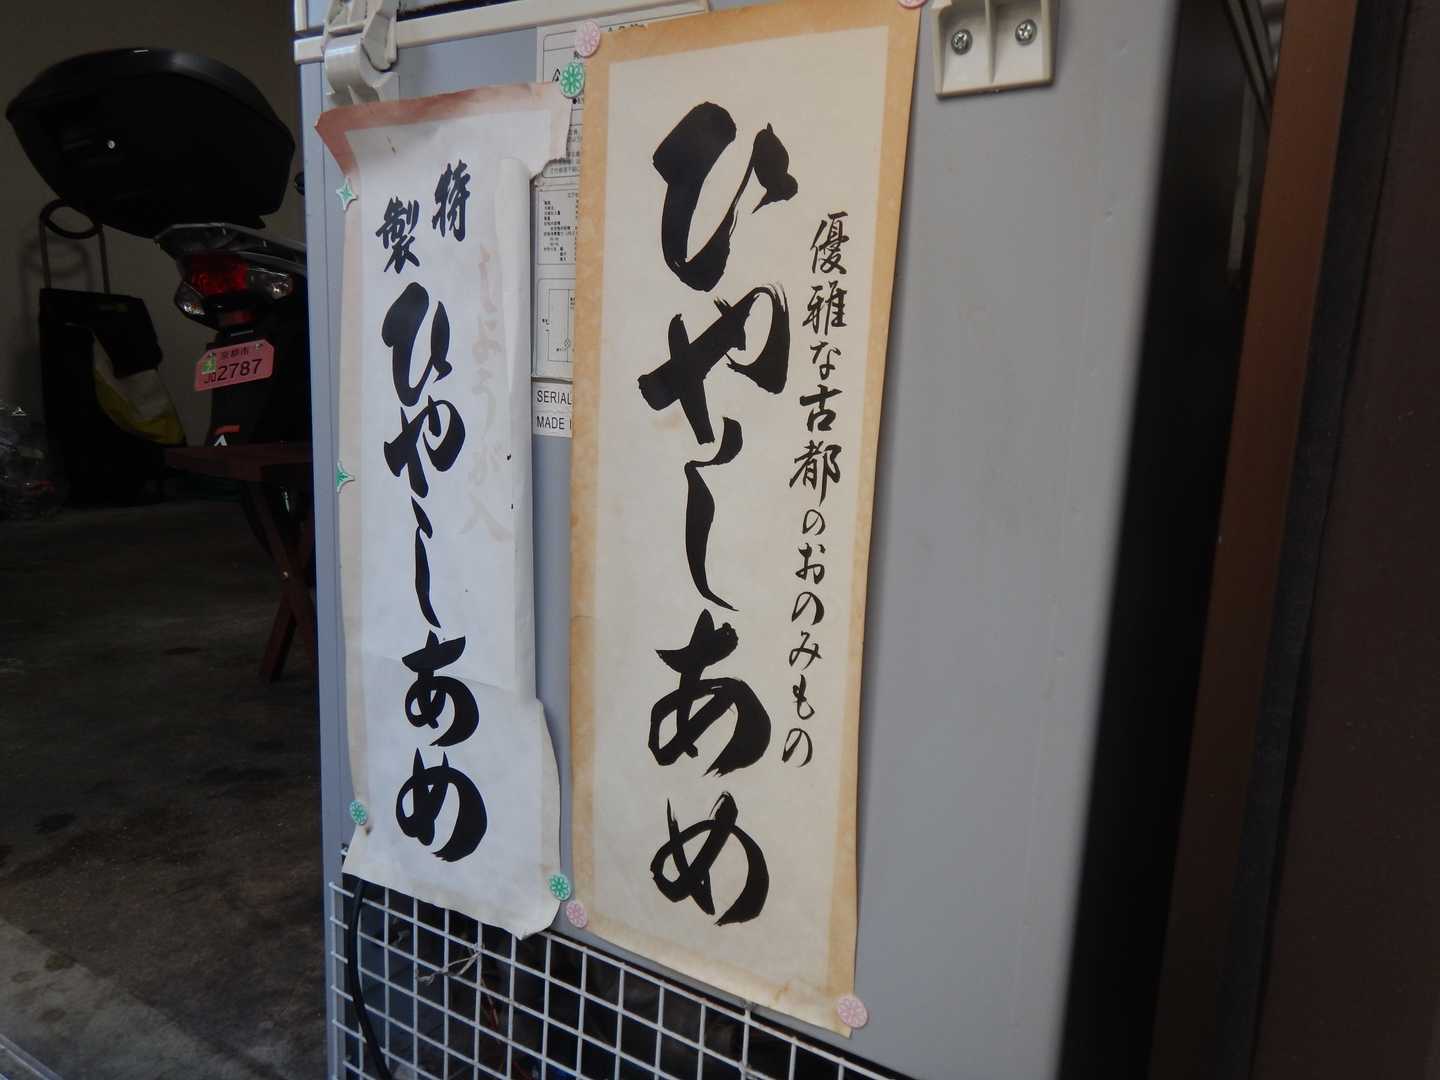 優雅な古都のおのみもの
ひやしあめ
特製
ひやしあめ
京都市
2787
SERIAL
MADE